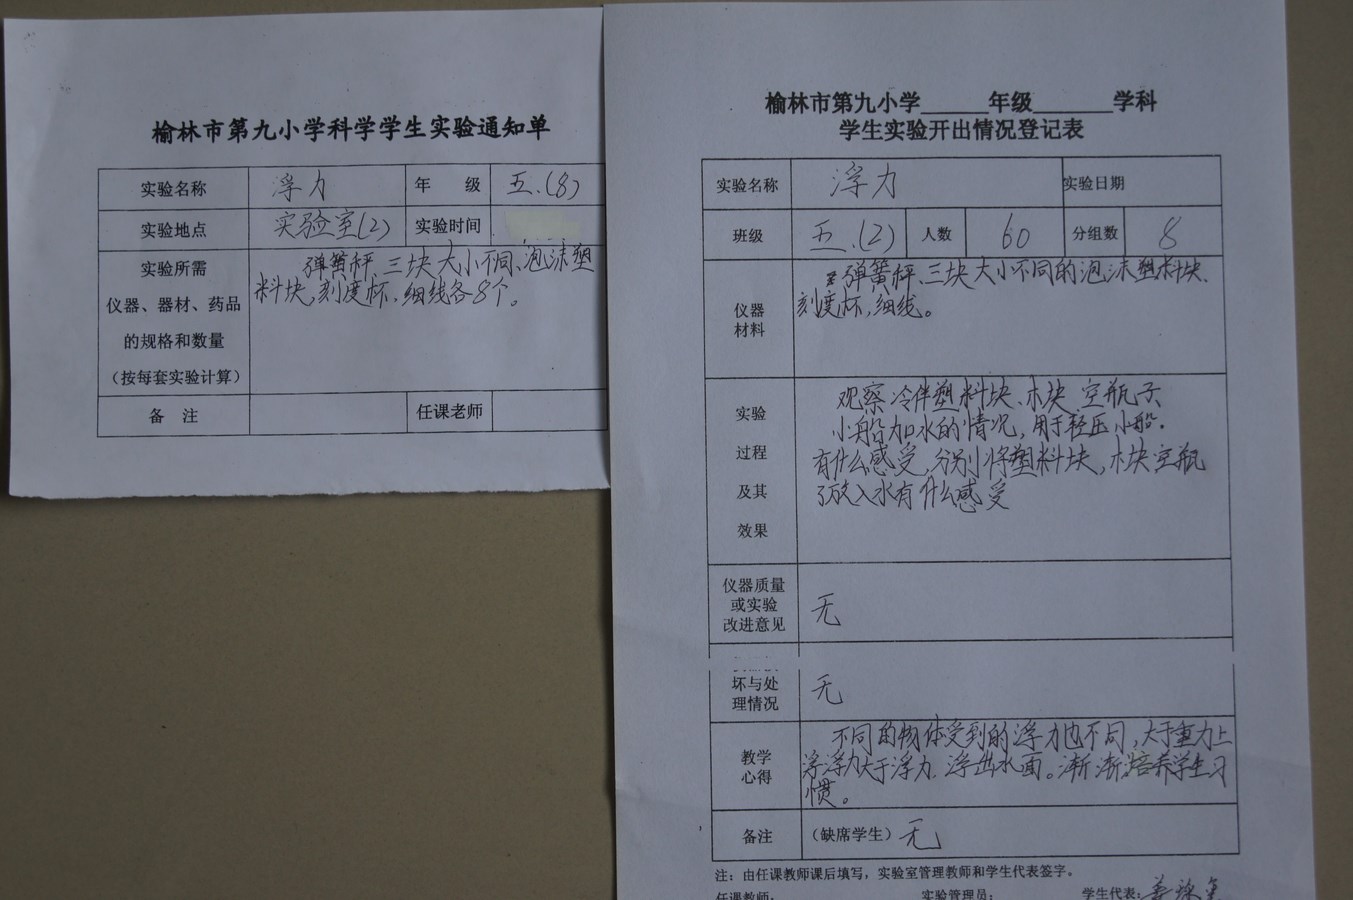 榆林市第九小学科学学生实验通知单
实验名称 浮力 年 级 五.(8)
实验地点 实验室(2) 实验时间
实验所需
仪器、器材、药品
的规格和数量
（按每套实验计算）
弹簧秤、三块大小不同、泡沫塑
料块,刻度杯,细线各8个。
备 注 任课老师
榆林市第九小学 年级 学科
学生实验开出情况登记表
实验名称 浮力 实验日期
班级 五.(2) 人数 60 分组数 8
仪器
材料
弹簧秤、三块大小不同的泡沫塑料块、
刻度杯,细线。
实验
过程
及其
效果
观察 塑料块、木块 空瓶子
小船加水的情况,用手轻压小船.
有什么感受,分别将塑料块,木块空瓶
子放入水有什么感受
仪器质量
或实验
改进意见
无
坏与处
理情况
无
教学
心得
不同的物体受到的浮力也不同,大于重力上
浮力大于浮力.浮出水面。渐渐培养学生习
惯。
备注 （缺席学生）无
注：由任课教师课后填写，实验室管理教师和学生代表签字。
任课教师: 实验管理员: 学生代表: